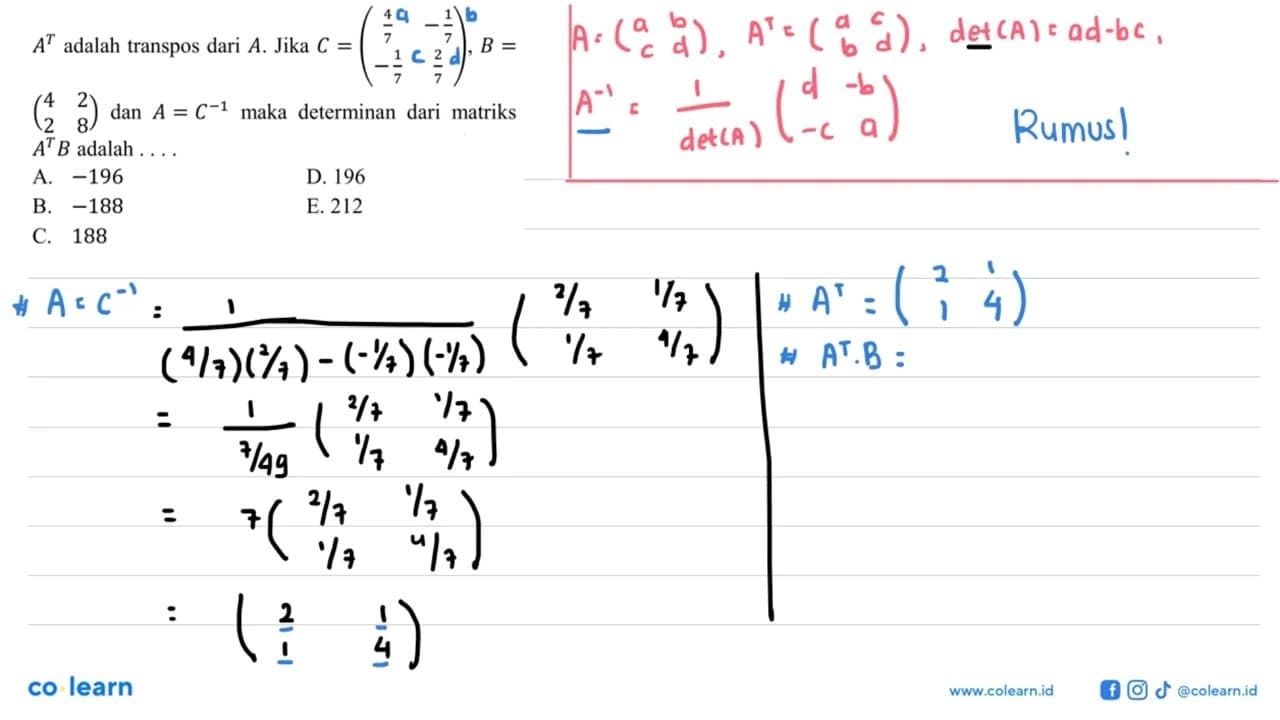 A^T adalah transpos dari A. Jika C = (4/7 -1/7 -1/7 2/7), B =
a b c d
(4 2 2 8) dan A = C^-1 maka determinan dari matriks
A^T B adalah . . . .
A. -196
B. -188
C. 188
D. 196
E. 212
A = (a b c d), A^T = (a c b d), det(A) = ad-bc,
A^-1 = 1/det(A) (d -b -c a)
Rumus!
# A = C^-1 = 1/((4/7)(2/7) - (-1/7)(-1/7)) (2/7 1/7 1/7 4/7)
= 1/(7/49) (2/7 1/7 1/7 4/7)
= 7 (2/7 1/7 1/7 4/7)
= (2 1 1 4)
# A^T = (2 1 1 4)
# A^T.B =
co learn
www.colearn.id
@colearn.id